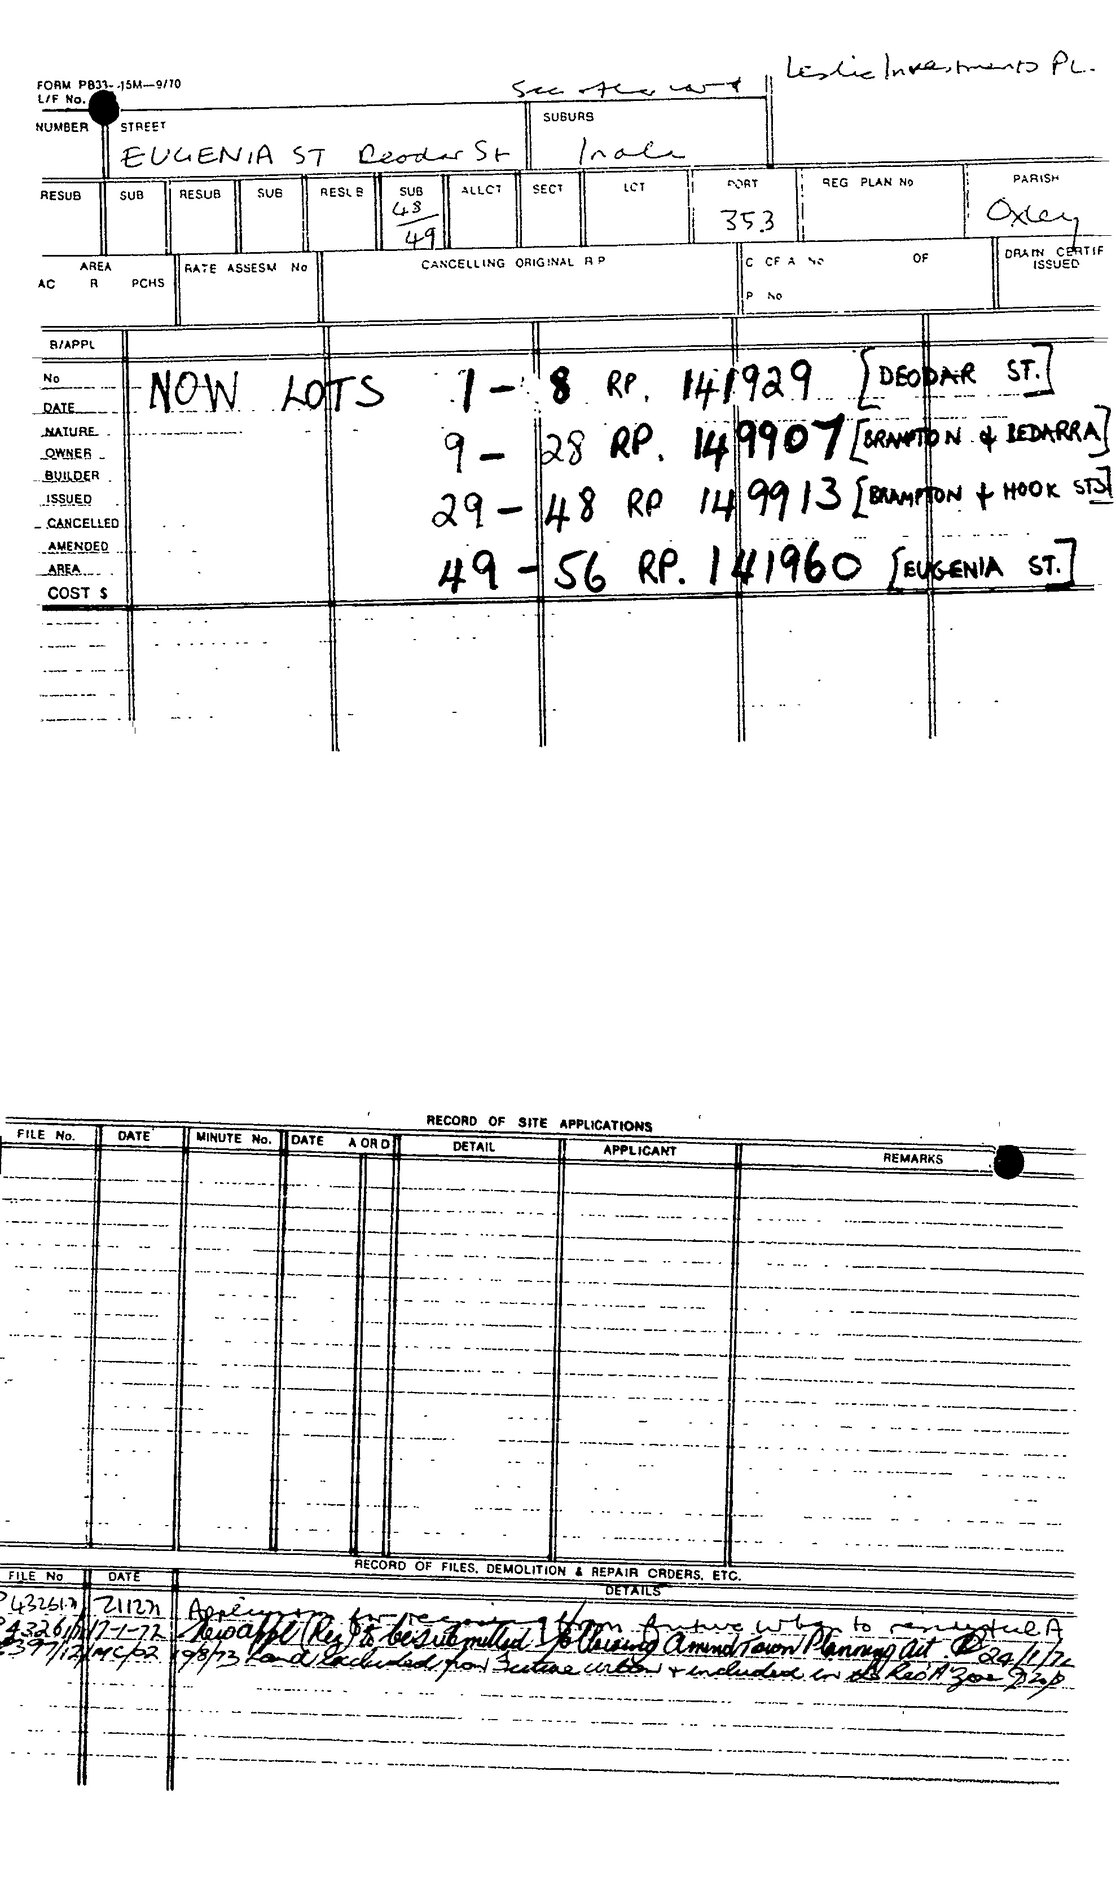 FORM PB33--15M—9/70
L/F No.
See other card
Leslie Investments PL.
NUMBER STREET SUBURB
EUGENIA ST Deodar St Inala
RESUB SUB RESUB SUB RESUB SUB ALLOT SECT LOT PORT REG PLAN No PARISH
48/49 353 Oxley
AREA RATE ASSESM No CANCELLING ORIGINAL R P C OF A No OF DRAIN CERTIF ISSUED
AC R PCHS P No
B/APPL
No NOW LOTS 1 - 8 RP. 141929 [DEODAR ST.]
DATE
NATURE 9 - 28 RP. 149907 [BRAMPTON & BEDARRA]
OWNER
BUILDER
ISSUED 29 - 48 RP 149913 [BRAMPTON & HOOK STS]
CANCELLED
AMENDED
AREA 49 - 56 RP. 141960 [EUGENIA ST.]
COST $
RECORD OF SITE APPLICATIONS
FILE No. DATE MINUTE No. DATE A OR D DETAIL APPLICANT REMARKS
RECORD OF FILES, DEMOLITION & REPAIR ORDERS, ETC.
FILE No DATE DETAILS
Application for rezoning from future urban to residential A
17-1-72 New appl (Rez) to be submitted following Amend Town Planning Act. 24/1/72
9/8/73 Land excluded from Future urban & included in the Res A Zone